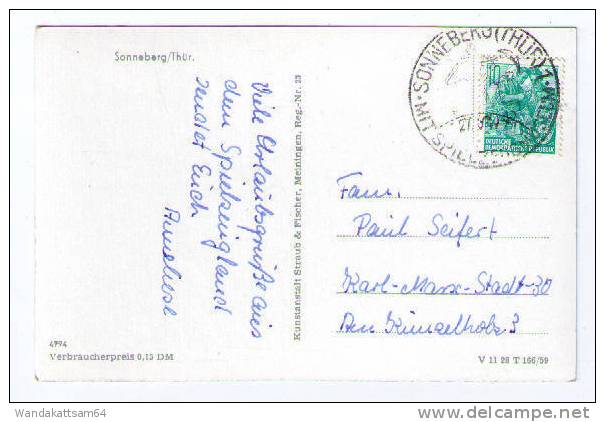 Sonneberg/Thür.
Viele Urlaubsgrüße aus
dem Spielzeugland
sendet Euch
Anneliese
4994
Verbraucherpreis 0,15 DM
Kunstanstalt Straub & Fischer, Meiningen, Reg.-Nr. 23
SONNEBERG (THÜR) 1
MIT SPIEL
10
DEUTSCHE
DEMOKRATISCHE REPUBLIK
Fam.
Paul Seifert
Karl-Marx-Stadt-30
Am Küngelholz 3
V 11 28 T 166/59
Wandakattsam64
www.delcampe.net